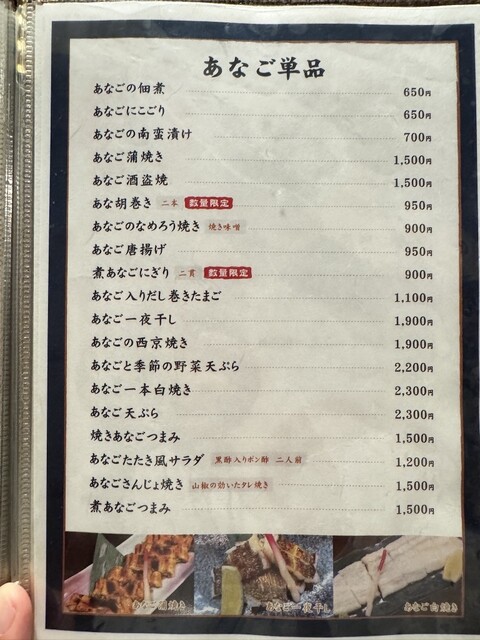 あなご単品
あなごの佃煮 650円
あなごにこごり 650円
あなごの南蛮漬け 700円
あなご蒲焼き 1,500円
あなご酒盗焼 1,500円
あな胡巻き 二本 数量限定 950円
あなごのなめろう焼き 焼き味噌 900円
あなご唐揚げ 950円
煮あなごにぎり 二貫 数量限定 900円
あなご入りだし巻きたまご 1,100円
あなご一夜干し 1,900円
あなごの西京焼き 1,900円
あなごと季節の野菜天ぷら 2,200円
あなご一本白焼き 2,300円
あなご天ぷら 2,300円
焼きあなごつまみ 1,500円
あなごたたき風サラダ 黒酢入りポン酢 二人前 1,200円
あなごさんじょ焼き 山椒の効いたタレ焼き 1,500円
煮あなごつまみ 1,500円
あなご蒲焼き
あなご一夜干し
あなご白焼き